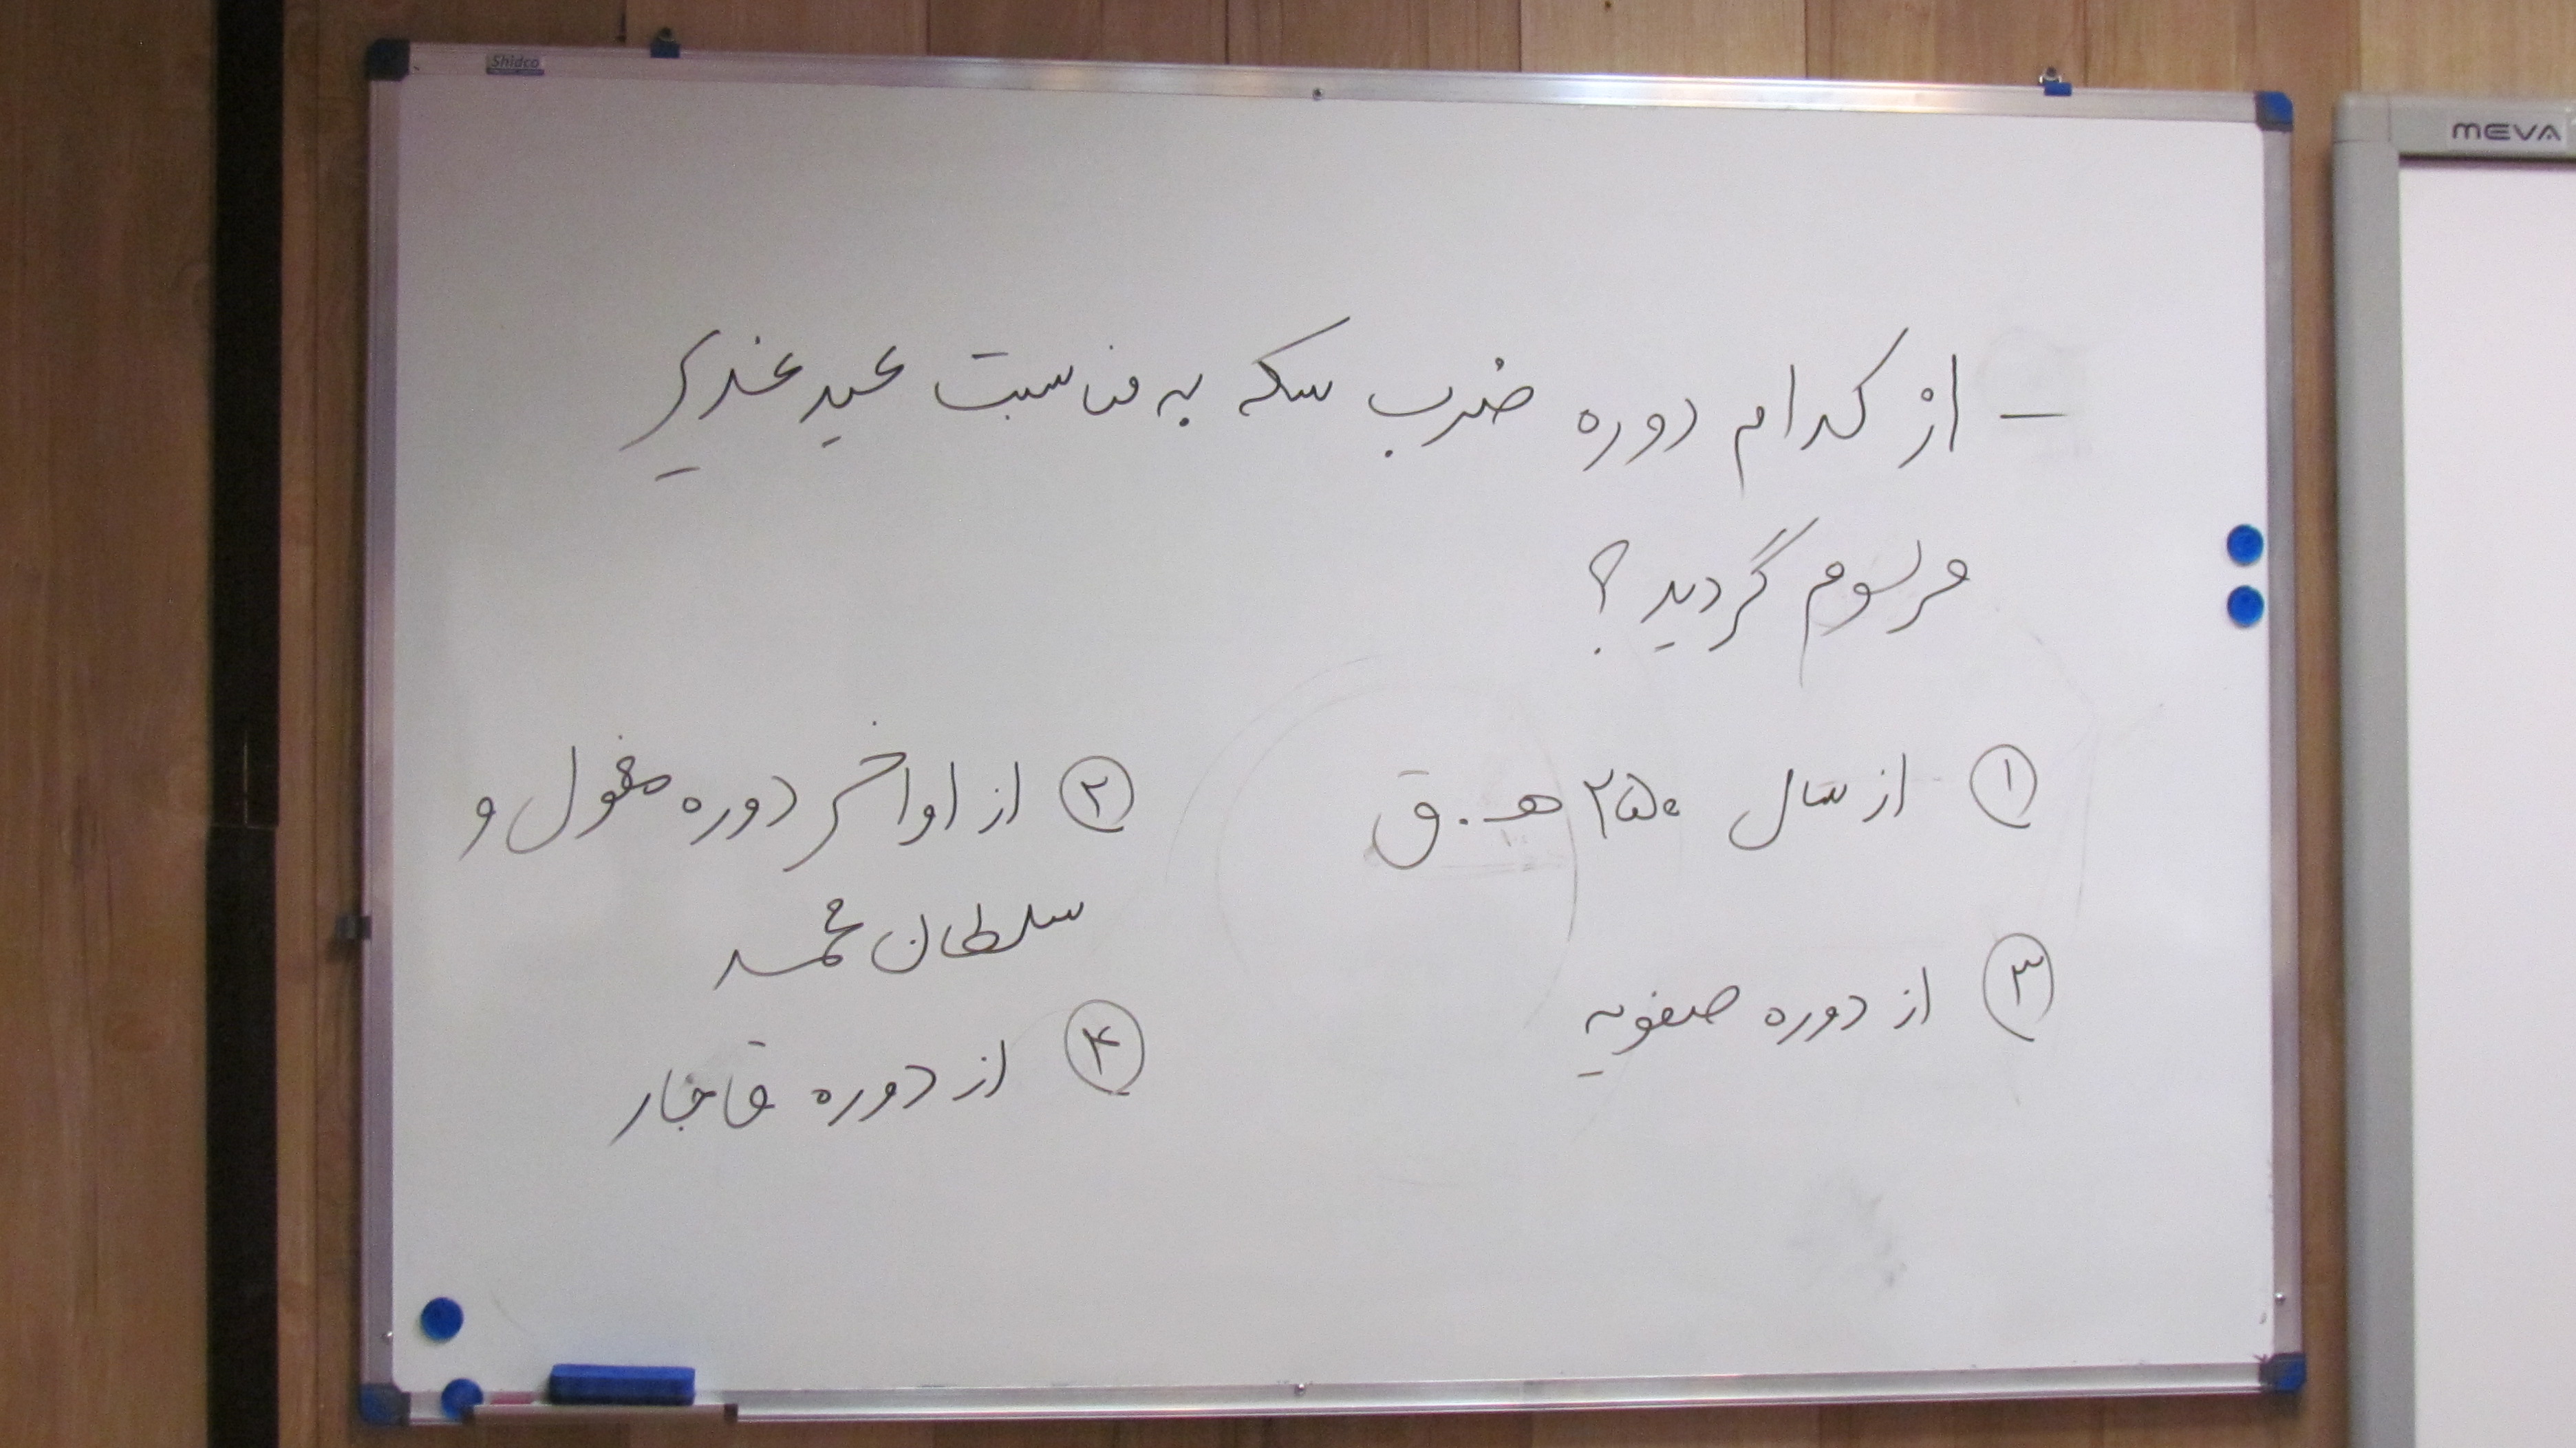 Shidco
MEVA
- از کدام دوره ضرب سکه به مناسبت عید غدیر
مرسوم گردید ؟
۱ از سال ۲۵۰ هـ . ق
۲ از اواخر دوره مغول و
سلطان محمد
۳ از دوره صفویه
۴ از دوره قاجار